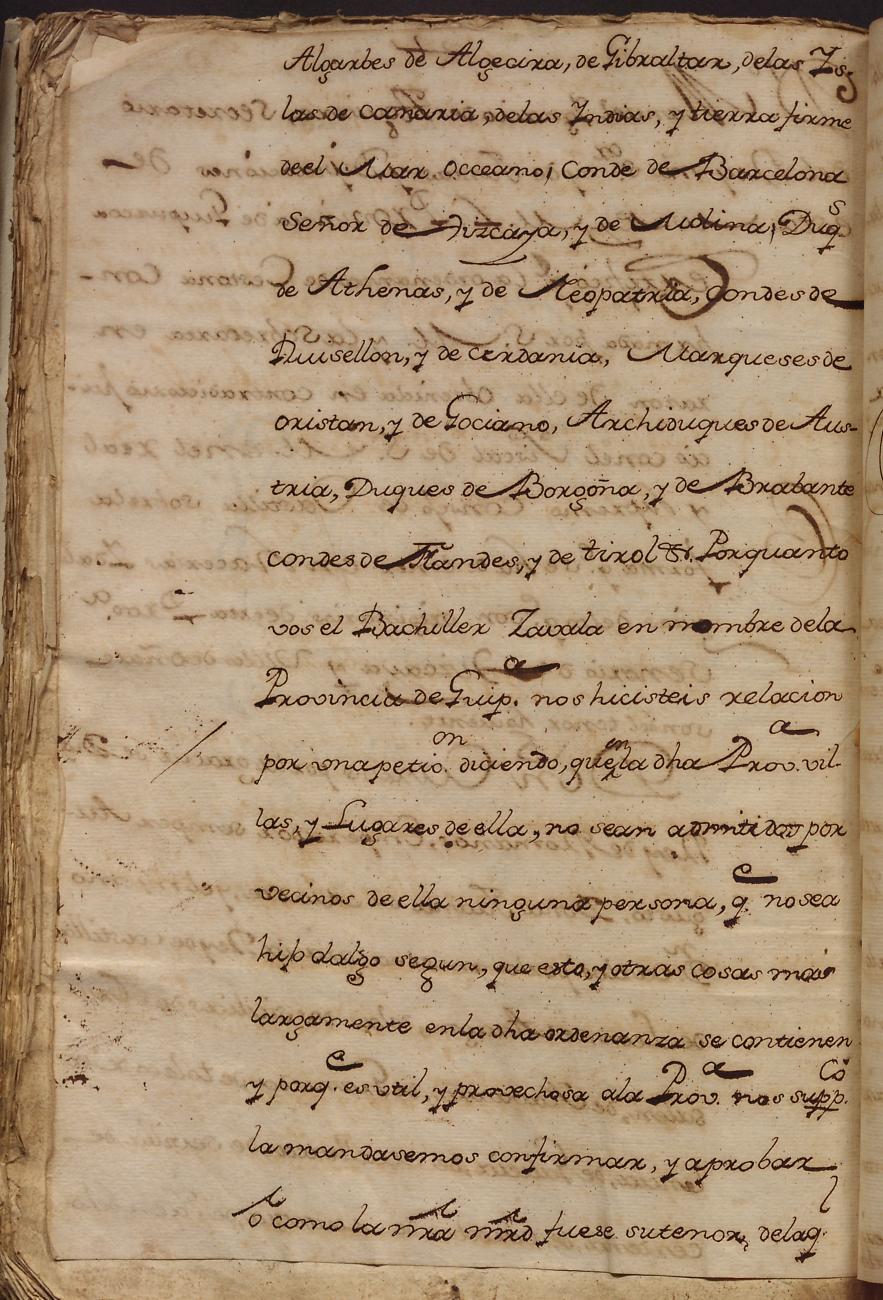 Algarbes de Algecira, de Gibraltar, delas Ys
las de Canaria, delas Yndias, y tierra firme
deel Mar Occeano, Conde de Barcelona
Señor de Vizcaya, y de Molina, Duq.s
de Athenas, y de Neopatria, Condes de
Ruisellon, y de Cerdania, Marqueses de
oristan, y de Gociano, Archiduques de Aus-
tria, Duques de Borgoña, y de Brabante
condes de Flandes, y de tirol &. Porquanto
vos el Bachiller Zavala en nombre dela
Provincia de Guip.a nos hicisteis relacion
por vna petio.on diciendo, que en la dha Prov.a vil-
las, y Lugares de ella, no sean admitidos por
vecinos de ella ninguna persona, q.e no sea
hijo dalgo segun, que esto, y otras cosas mas
largamente enla dha ordenanza se contienen
y porq.e es vtil, y provechosa ala Prov.a nos supp.co
la mandasemos confirmar, y aprobar
o como la nra mrd fuese su tenor, delaq.l